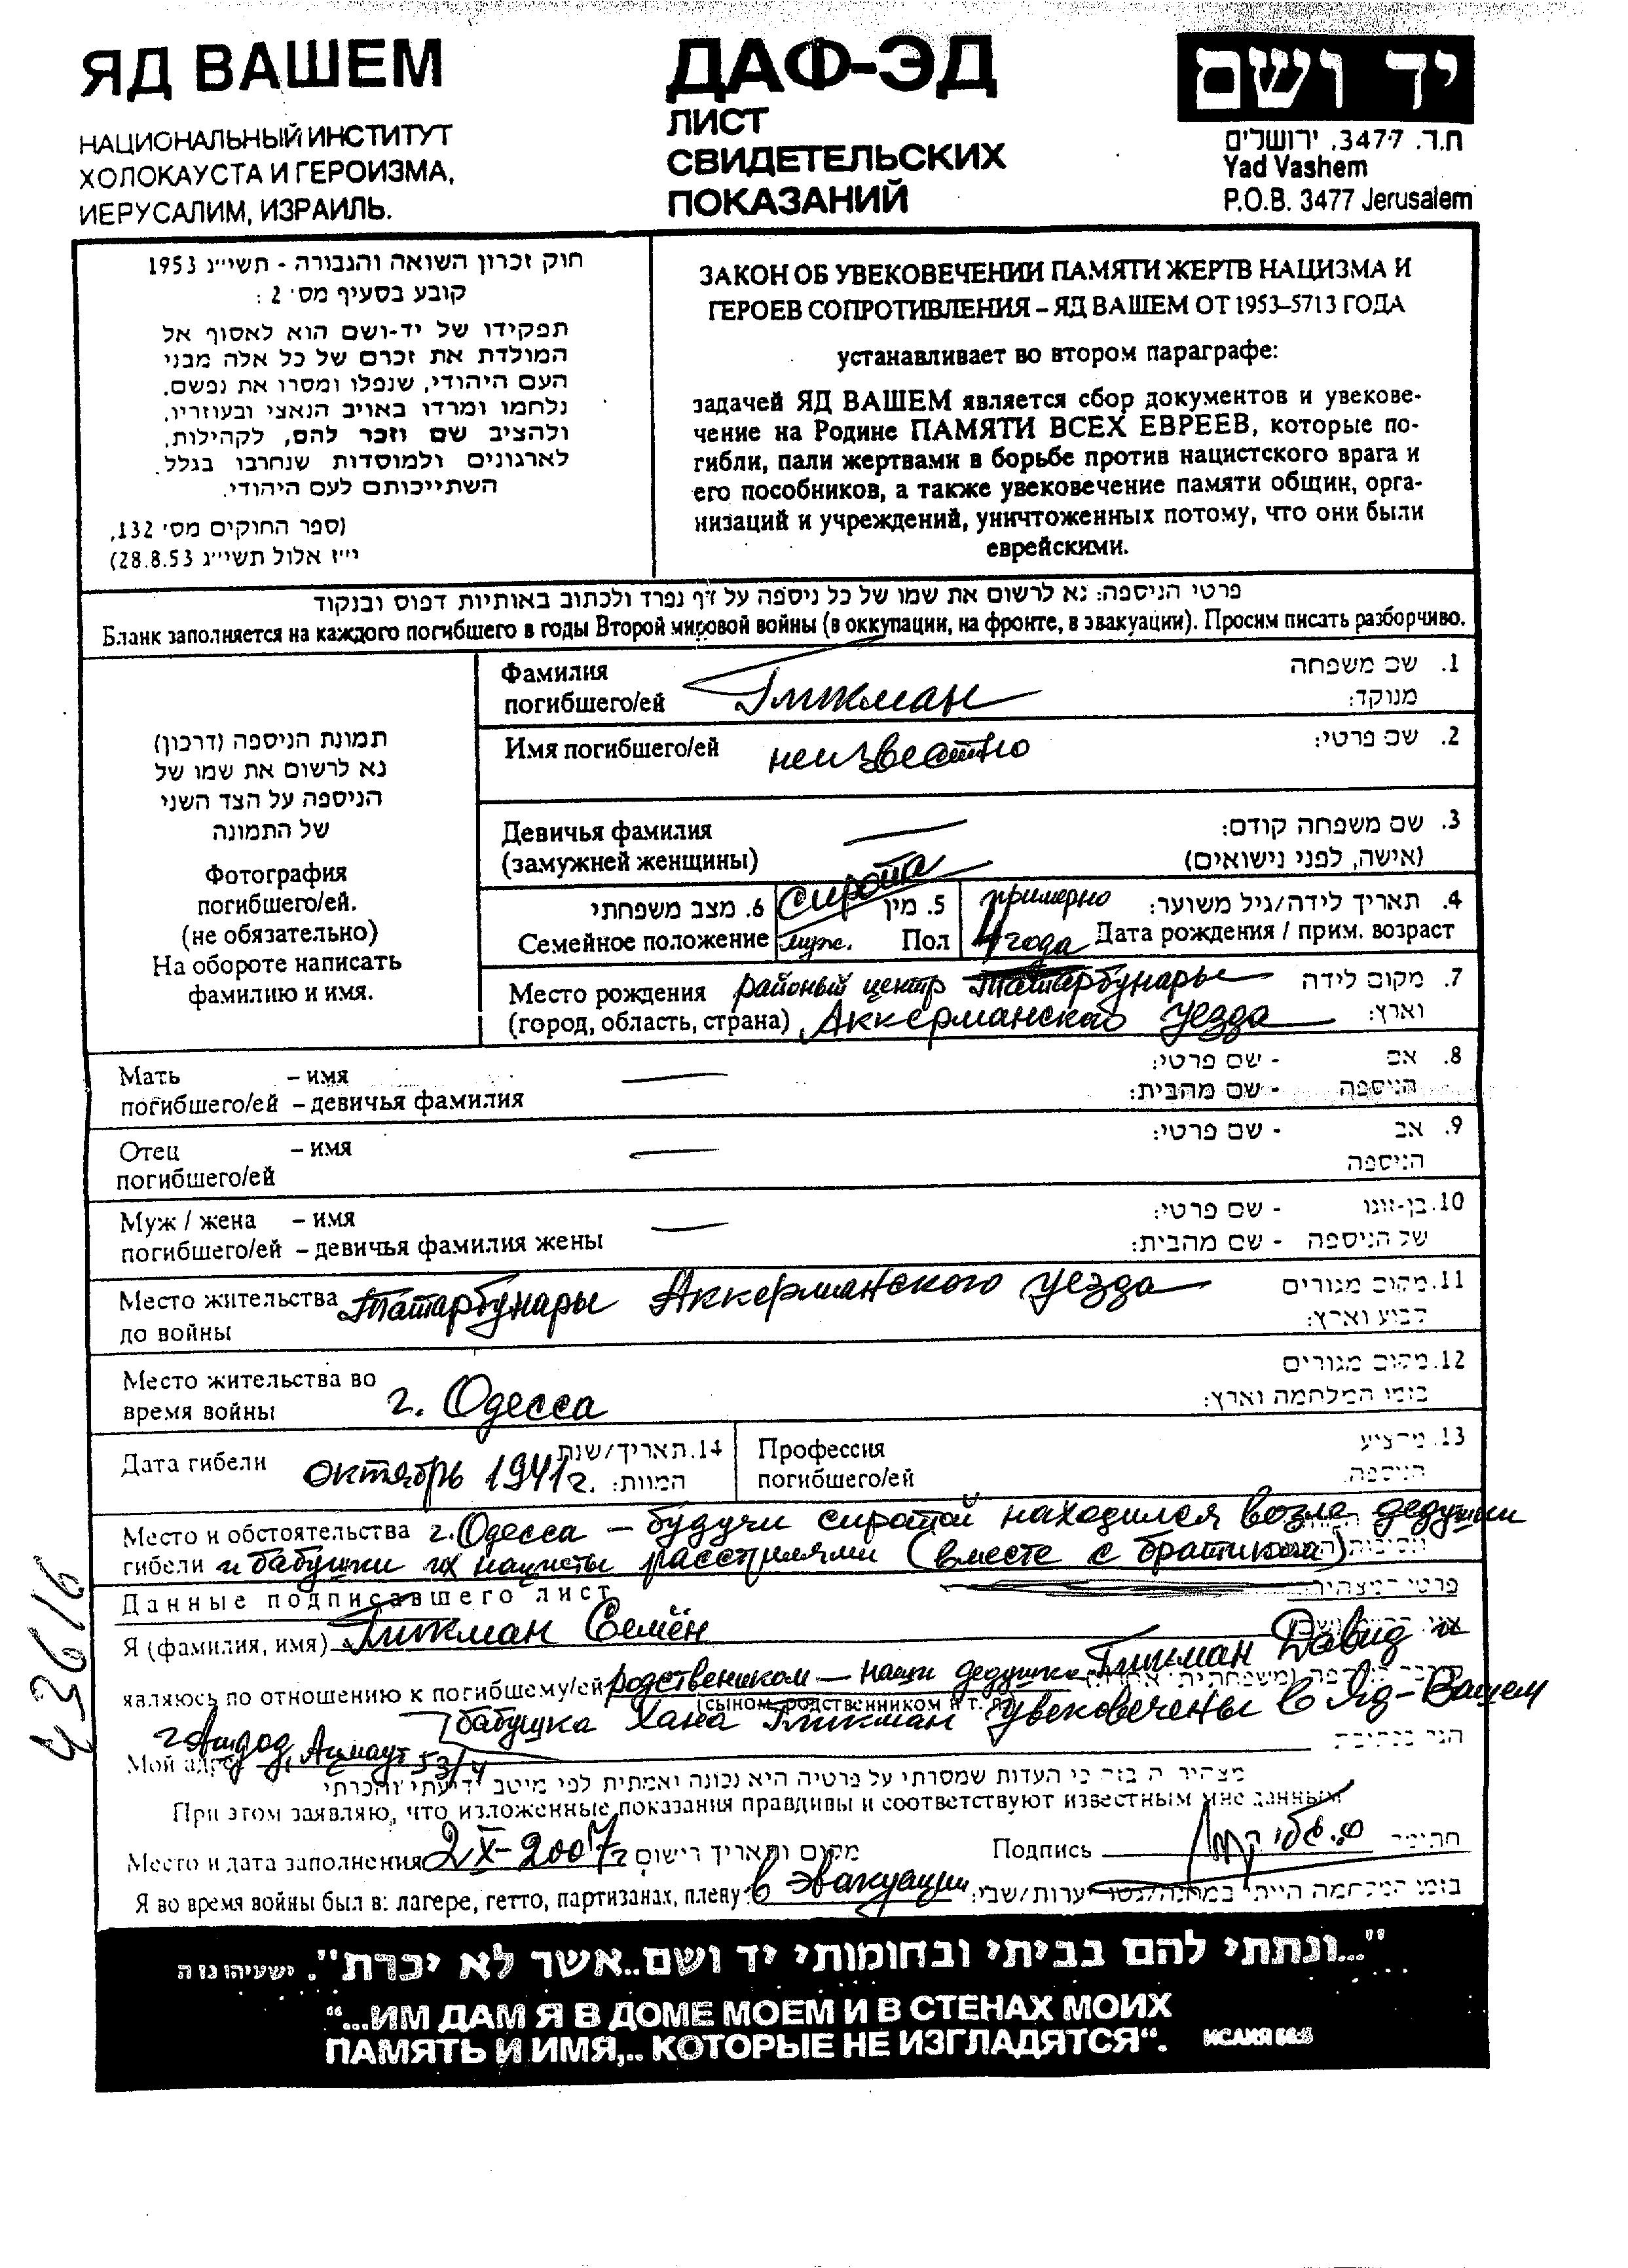 ЯД ВАШЕМ
НАЦИОНАЛЬНЫЙ ИНСТИТУТ
ХОЛОКАУСТА И ГЕРОИЗМА,
ИЕРУСАЛИМ, ИЗРАИЛЬ.
ДАФ-ЭД
ЛИСТ
СВИДЕТЕЛЬСКИХ
ПОКАЗАНИЙ
יד ושם
ת.ד. 3477, ירושלים
Yad Vashem
P.O.B. 3477 Jerusalem
חוק זכרון השואה והגבורה - תשי"ג 1953
קובע בסעיף מס' 2 :
תפקידו של יד-ושם הוא לאסוף אל
המולדת את זכרם של כל אלה מבני
העם היהודי, שנפלו ומסרו את נפשם,
נלחמו ומרדו באויב הנאצי ובעוזריו,
ולהציב שם וזכר להם, לקהילות,
לארגונים ולמוסדות שנחרבו בגלל
השתייכותם לעם היהודי.
(ספר החוקים מס' 132,
י"ז אלול תשי"ג 28.8.53)
ЗАКОН ОБ УВЕКОВЕЧЕНИИ ПАМЯТИ ЖЕРТВ НАЦИЗМА И
ГЕРОЕВ СОПРОТИВЛЕНИЯ – ЯД ВАШЕМ ОТ 1953–5713 ГОДА
устанавливает во втором параграфе:
задачей ЯД ВАШЕМ является сбор документов и увекове-
чение на Родине ПАМЯТИ ВСЕХ ЕВРЕЕВ, которые по-
гибли, пали жертвами в борьбе против нацистского врага и
его пособников, а также увековечение памяти общин, орга-
низаций и учреждений, уничтоженных потому, что они были
еврейскими.
פרטי הניספה: נא לרשום את שמו של כל ניספה על דף נפרד ולכתוב באותיות דפוס ובנקוד
Бланк заполняется на каждого погибшего в годы Второй мировой войны (в оккупации, на фронте, в эвакуации). Просим писать разборчиво.
תמונת הניספה (דרכון)
נא לרשום את שמו של
הניספה על הצד השני
של התמונה
Фотография
погибшего/ей.
(не обязательно)
На обороте написать
фамилию и имя.
Фамилия 1. שם משפחה
погибшего/ей Гликман מנוקד:
Имя погибшего/ей неизвестно 2. שם פרטי:
Девичья фамилия — 3. שם משפחה קודם:
(замужней женщины) (אישה, לפני נישואים)
6. מצב משפחתי сирота 5. מין примерно 4. תאריך לידה/גיל משוער:
Семейное положение муж. Пол 4 года Дата рождения / прим. возраст
Место рождения районый центр Татарбунары 7. מקום לידה
(город, область, страна) Аккерманского уезда וארץ:
Мать – имя — 8. אם - שם פרטי:
погибшего/ей – девичья фамилия הניספה - שם מהבית:
Отец – имя — 9. אב - שם פרטי:
погибшего/ей הניספה
Муж / жена – имя — 10. בן-זוגו - שם פרטי:
погибшего/ей – девичья фамилия жены של הניספה - שם מהבית:
Место жительства Татарбунары Аккерманского уезда 11. מקום מגורים
до войны קבוע וארץ:
Место жительства во 12. מקום מגורים
время войны г. Одесса בזמן המלחמה וארץ:
Дата гибели октябрь 1941 г. 14. תאריך/שנת המוות:
Профессия 13. מקצוע
погибшего/ей הניספה
Место и обстоятельства г. Одесса – будучи сиротой находился возле дедушки
гибели и бабушки их нацисты расстреляли (вместе с братиком)
Данные подписавшего лист
Я (фамилия, имя) Гликман Семён
являюсь по отношению к погибшему/ей родствеником – наши дедушка Гликман Давид и
(сыном, родственником и т. д.)
бабушка Хана Гликман увековечены в Яд-Вашем
Мой адрес г. Ашдод, Ацмаут 53/4
מצהיר/ה בזה כי העדות שמסרתי על פרטיה היא נכונה ואמתית לפי מיטב ידיעתי והכרתי
При этом заявляю, что изложенные показания правдивы и соответствуют известным мне данным
Место и дата заполнения 2 X-2007 г. מקום ותאריך רישום Подпись חתימה
Я во время войны был в: лагере, гетто, партизанах, плену: в эвакуации
43616
"...ונתתי להם בביתי ובחומותי יד ושם..אשר לא יכרת". ישעיהו נו ה
“...ИМ ДАМ Я В ДОМЕ МОЕМ И В СТЕНАХ МОИХ
ПАМЯТЬ И ИМЯ,.. КОТОРЫЕ НЕ ИЗГЛАДЯТСЯ“. ИСАИЯ 56:5